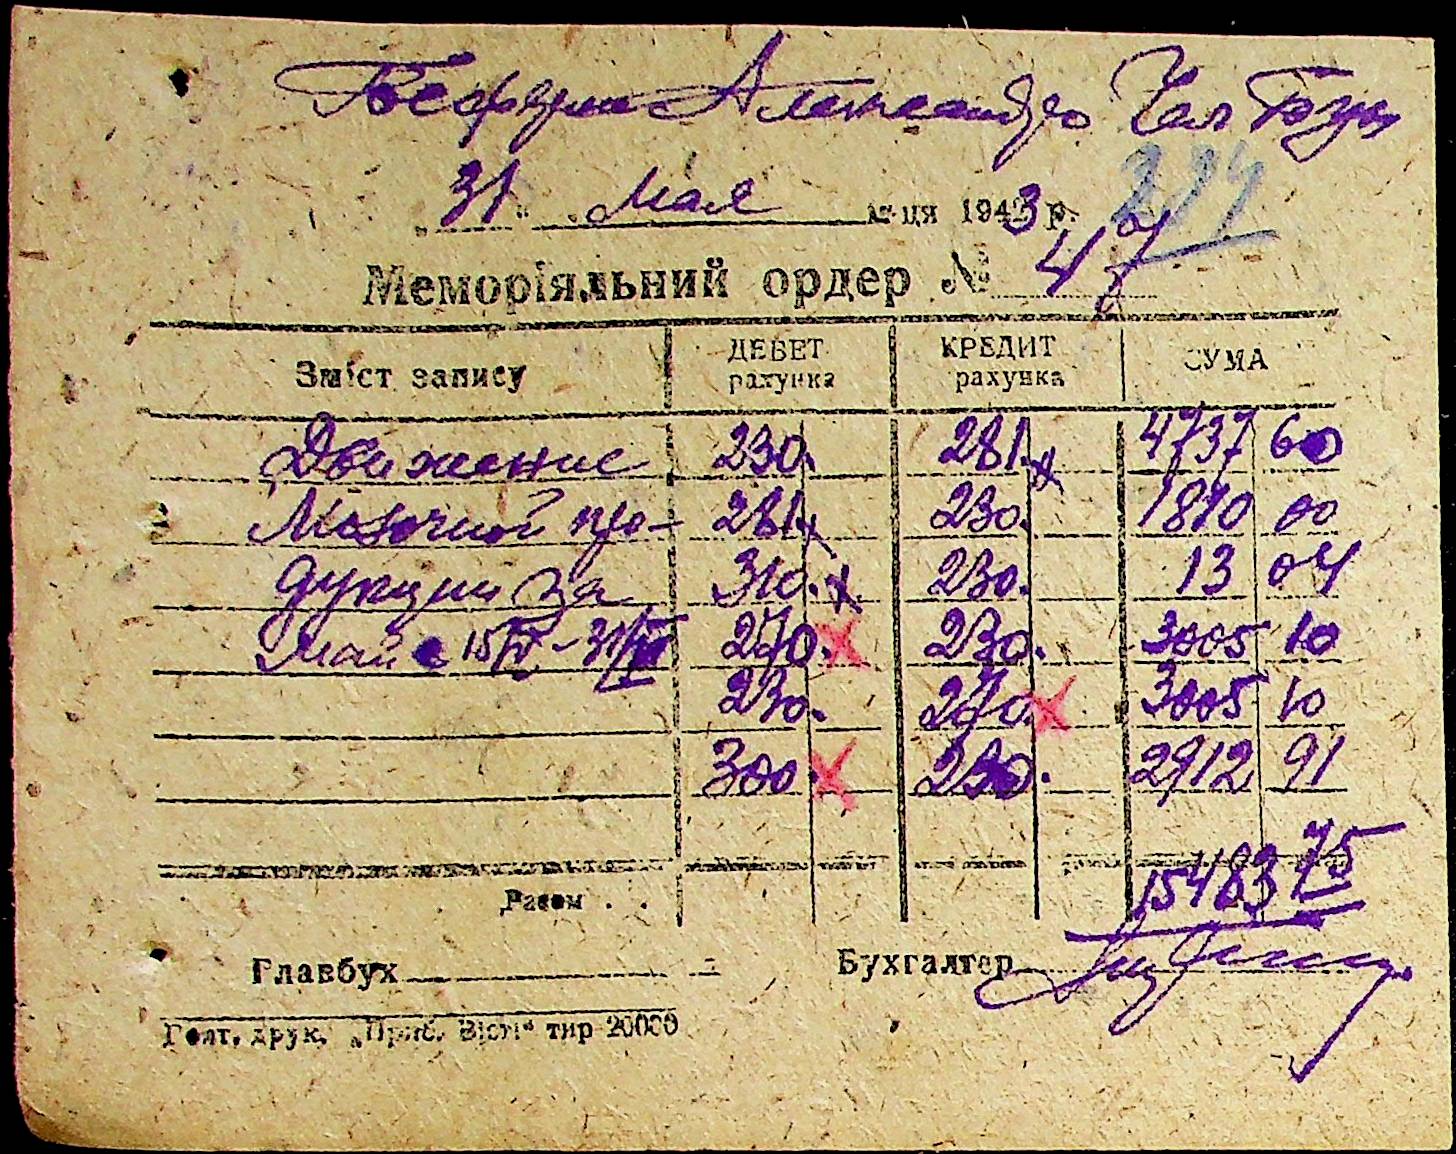 Александро
"31" Мая м-ця 1943 р.
Меморіяльний ордер № 47
Зміст запису ДЕБЕТ рахунка КРЕДИТ рахунка СУМА
Движение 230. 281. 4737 60
Молочной про- 281. 230. 1810 00
дукции за 310. 230. 13 04
Май с 15/V - 31/V 270. 230. 3005 10
230. 270. 3005 10
300. 230. 2912 91
Разом . . 15483 75
Главбух Бухгалтер
Голт. друк. „Приб. Вісті“ тир 20000